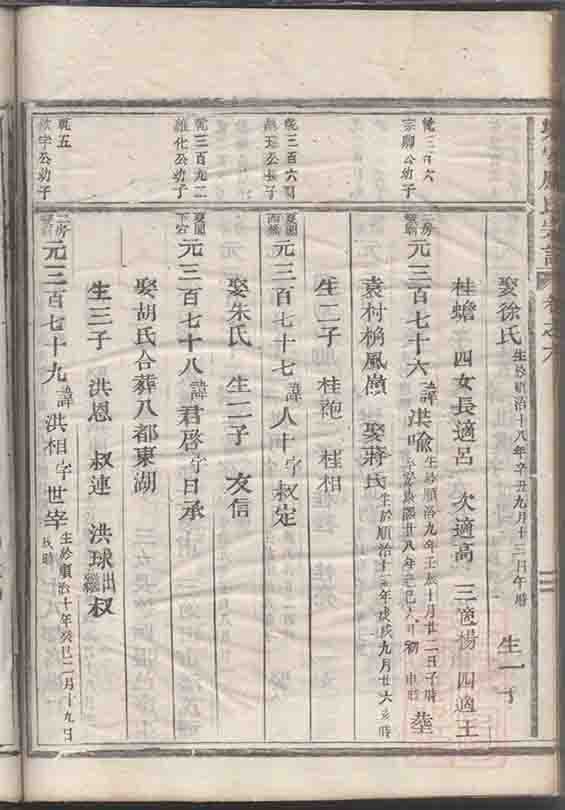 氏宗譜 卷之六
娶徐氏 生於順治十八年辛丑九月十二日午時 生一子
桂蟾 四女長適呂 次適高 三適楊 四適王
乾三百六 幼子
元三百七十六 諱洪喻 生於順治九年壬辰十月廿二日子時 葬
袁村楓嶺 娶蔣氏 生於順治十五年戊戌九月廿六亥時
生二子 桂袍 桂相
乾三百六 公長子
元三百七十七 諱人十字叔定
娶朱氏 生二子 友信
乾三百九二 維化公幼子
元三百七十八 諱君啓字日承
娶胡氏合葬八都東湖
生三子 洪恩 叔連 洪球出繼叔
乾五 字公幼子
二房 元三百七十九 諱洪相字世宰 生於順治十年癸巳二月十九日 時